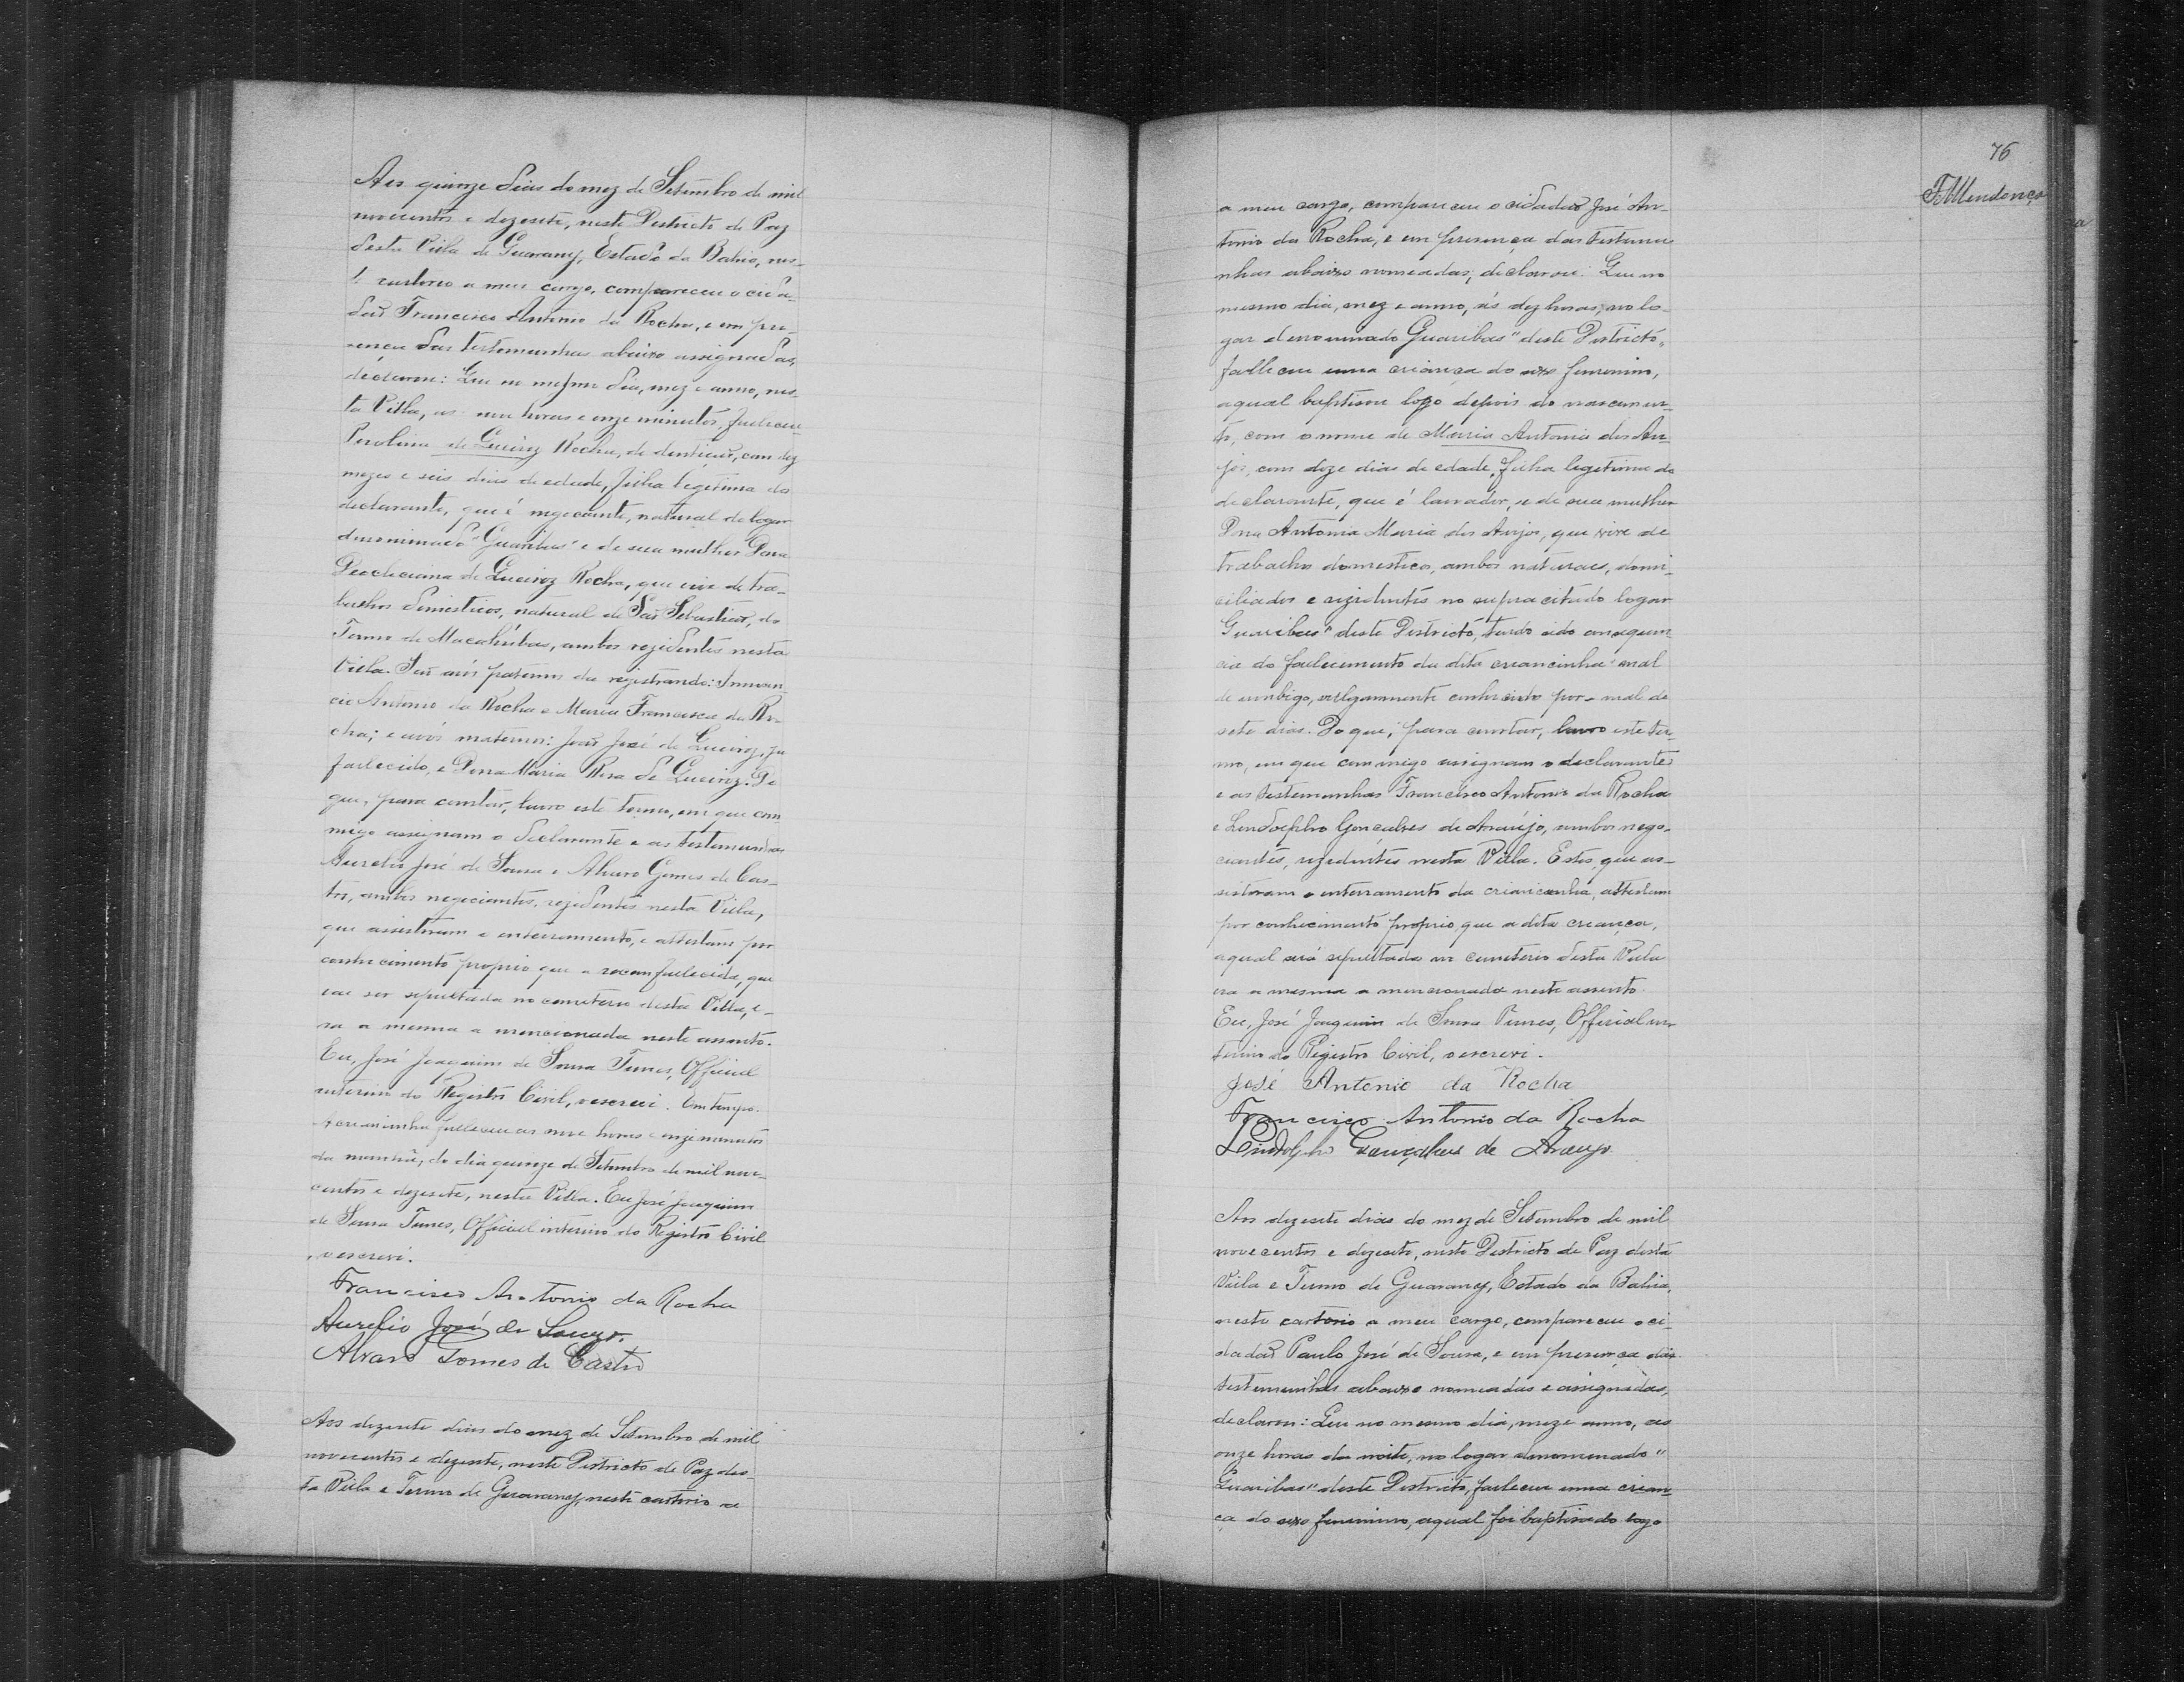 Aos quinze dias do mez de Setembro de mil
novecentos e dezesete, neste Districto de Paz
desta Villa de Guarany, Estado da Bahia, nes-
te cartorio a meu cargo, compareceu o cida-
dão Francisco Antonio da Rocha, e em pre-
sença das testemunhas abaixo assignadas,
declarou: Que no mesmo dia, mez e anno, nes-
ta Villa, as nove horas e onze minutos, falleceu
de Queiroz Rocha, de dentição, com dez
mezes e seis dias de edade, filha legitima do
declarante, que é negociante, natural do logar
denominado "Guaribas" e de sua mulher Dona
de Queiroz Rocha, que vive de tra-
balhos domesticos, natural de São Sebastião, do
Termo de Macahúbas, ambos rezidentes nesta
Villa. São avós paternos da registranda: Innocen-
cio Antonio da Rocha e Maria Francisca da Ro-
cha; e avós maternos: João José de Queiroz, ja
fallecido, e Dona Maria Rosa de Queiroz. Do
que, para constar, lavro este termo, em que com
migo assignam o declarante e as testemunhas
Aurelio José de Sousa e Alvaro Gomes de Cas-
tro, ambos negociantes, rezidentes nesta Villa,
que assistiram o enterramento, e attestam por
conhecimento proprio que a recemfallecida, que
vae ser sepultada no cemiterio desta Villa, e-
ra a mesma a mencionada neste assento.
Eu, José Joaquim de Sousa Tunes, Official
interino do Registro Civil, o escrevi. Em tempo.
A creancinha falleceu as nove horas e onze minutos
da manhã, do dia quinze de Setembro de mil nove-
centos e dezesete, nesta Villa. Eu José Joaquim
de Sousa Tunes, Official interino do Registro Civil
, o escrevi.
Francisco Antonio da Rocha
Aurelio José de Souza.
Alvaro Gomes de Castro
Aos dezesete dias do mez de Setembro de mil
novecentos e dezesete, neste Districto de Paz des-
ta Villa e Termo de Guarany, neste cartorio a
76
F. Mendonça
a meu cargo, compareceu o cidadão José An-
tonio da Rocha, e em presença das testemu-
nhas abaixo nomeadas, declarou: Que no
mesmo dia, mez e anno, ás dez horas, no lo-
gar denominado Guaribas" deste Districto,
falleceu uma criança do sexo feminino,
a qual baptisou logo depois do nascimen-
to, com o nome de Maria Antonia dos An-
jos, com doze dias de edade, filha legitima do
declarante, que é lavrador, e de sua mulher
Dna Antonia Maria dos Anjos, que vive de
trabalho domestico, ambos naturaes, domi-
ciliados e rezidentes no supracitado logar
Guaribas" deste Districto, tendo sido consequen-
cia do fallecimento da dita creancinha "mal
de umbigo, vulgarmente conhecido por - mal de
sete dias. Do que, para constar, lavro este ter-
mo, em que commigo assignam o declarante
e as testemunhas Francisco Antonio da Rocha
e Lindolpho Gonçalves de Araujo, ambos nego-
ciantes, rezidentes nesta Villa. Estes, que as-
sistiram o enterramento da criancinha, attestam
por conhecimento proprio, que a dita creança,
a qual será sepultada no cemiterio desta Villa
era a mesma a mencionada neste assento.
Eu, José Joaquim de Sousa Tunes, Official in-
terino do Registro Civil, o escrevi.
José Antonio da Rocha
Francisco Antonio da Rocha
Lindolpho Gonçalves de Araujo
Aos dezesete dias do mez de Setembro de mil
novecentos e dezesete, neste Districto de Paz desta
Villa e Termo de Guarany, Estado da Bahia,
neste cartorio a meu cargo, compareceu o ci-
dadão Paulo José de Sousa, e em presença das
testemunhas abaixo nomeadas e assignadas,
declarou: Que no mesmo dia, mez e anno, as
onze horas da noite, no logar denominado "
Guaribas" deste Districto, falleceu uma crian-
ça do sexo feminino, a qual foi baptisada logo